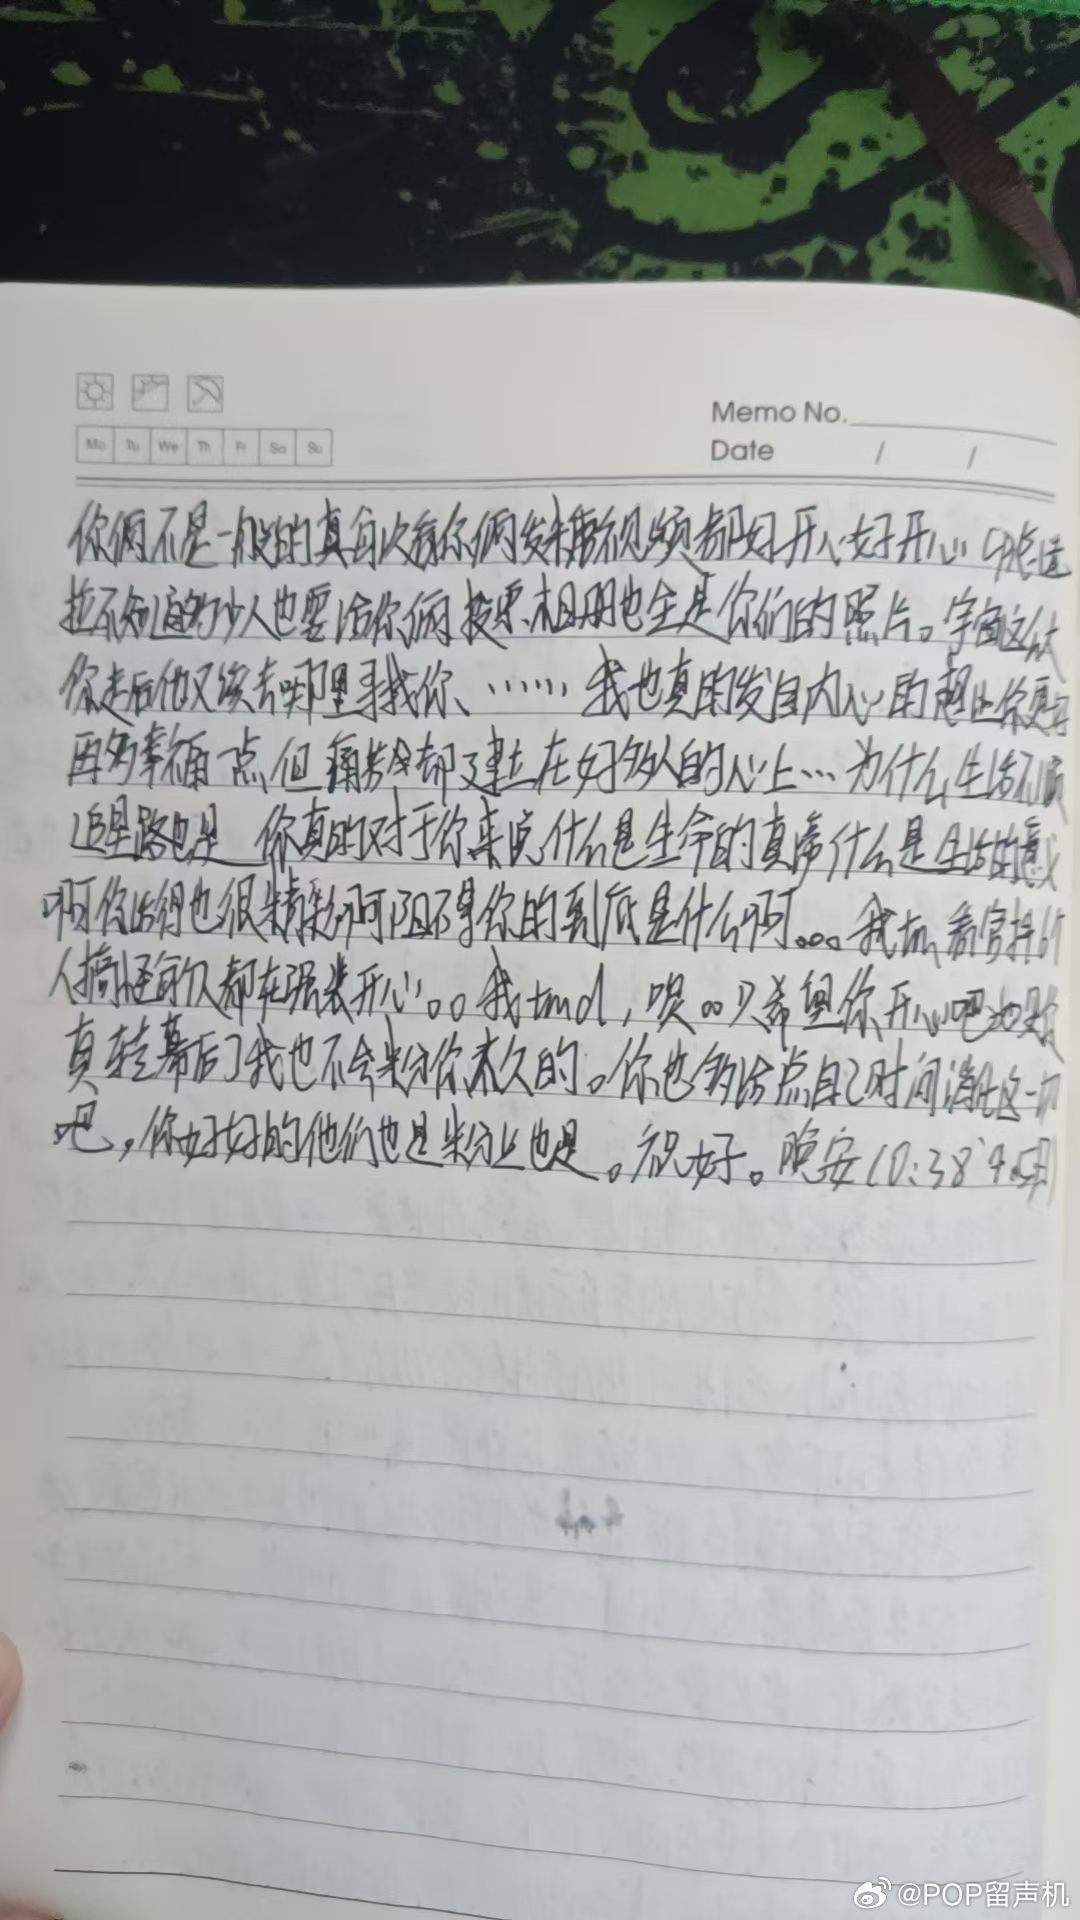 Memo No.
Mo Tu We Th Fr Sa Su
Date / /
你俩不是一般的真每次看你俩发来的视频都好开心好开心
拉不知道的多少人也要给你俩投票、相册也全是你们的照片。宇宙这么大
你走后他又该去哪里寻找你、……我也真的发自内心的想让你更好
再多幸福一点,但痛苦却建立在好多人的心上…为什么生活不顺
追星路也是 你真的对于你来说什么是生命的真谛什么是生活的意义
啊你活得也很精彩啊阻不了你的到底是什么啊。。。我tm看
人搞怪每次都在强装开心。。我tmd,唉。。只希望你开心吧
真转幕后了我也不会 你太久的。你也多给点自己时间消化这一切
吧,你好好的他们也是 也是。祝好。晚安10:38
@POP留声机